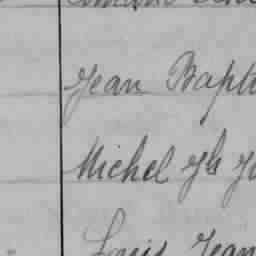 Jean Bapt
Michel fls J
Louis Jean